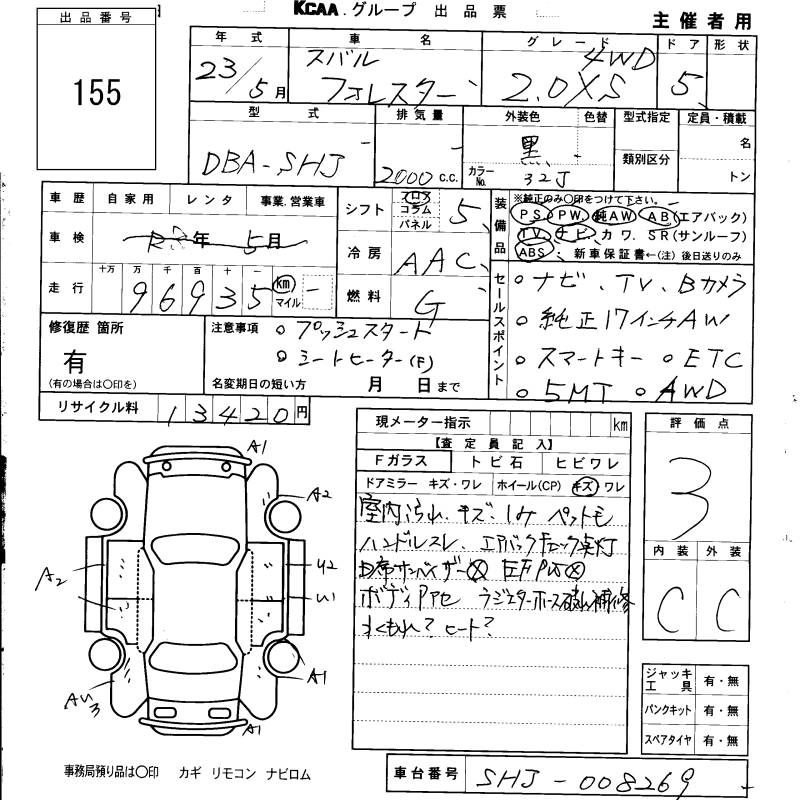 KCAA.グループ 出品票
主催者用
出品番号
155
年式 車名 グレード ドア 形状
23/5月 スバル フォレスター 4WD 2.0XS 5
型式 排気量 外装色 色替 型式指定 定員・積載
DBA-SHJ 2000c.c. 黒 カラーNo. 32J 類別区分 名
トン
車歴 自家用 レンタ 事業.営業車
車検 年 5月
走行 十万 万 千 百 十 一
96935 km マイル
シフト フロア コラム パネル 5
冷房 AAC
燃料 G
装備品 ※純正のみ〇印をつけて下さい。
PS PW 純AW AB(エアバック)
TV ナビ カワ SR(サンルーフ)
ABS 新車保証書←(注)後日送りのみ
セールスポイント
○ナビ、TV、Bカメラ
○純正17インチAW
○スマートキー ○ETC
○5MT ○AWD
修復歴 箇所
有
(有の場合は〇印を)
注意事項 ○プッシュスタート
○シートヒーター(F)
名変期日の短い方 月 日まで
リサイクル料 13420円
現メーター指示 km
【査定員記入】
Fガラス トビ石 ヒビワレ
ドアミラー キズ・ワレ ホイール(CP) キズ ワレ
室内汚れ、キズ、しみ ペットモ
ハンドルスレ、エアバックチェック点灯
サンバイザー
ボディ ラジエターホース破れ補修
水もれ?ヒート?
評価点
3
内装 外装
C C
ジャッキ工具 有・無
パンクキット 有・無
スペアタイヤ 有・無
A1
A2
A2
U2
U1
A1
AU3
A1
事務局預り品は〇印 カギ リモコン ナビロム
車台番号 SHJ-008269